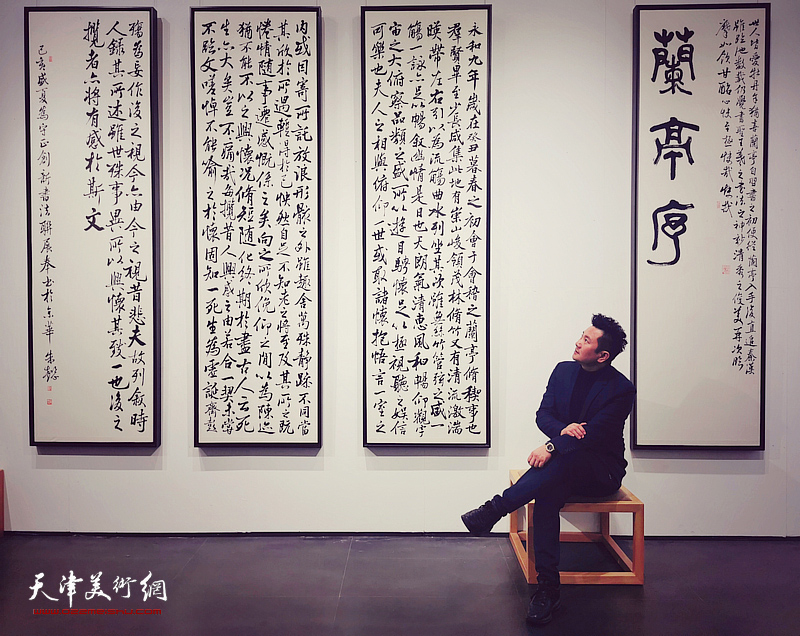 蘭亭序
世人皆愛牡丹余獨喜蘭亭自習書之初便從蘭亭入手後直追秦漢
雖臨池數載仍覺書聖羲之書法之神韵清秀之俊美再次臨
摹如飲甘醴心快至極快哉快哉
永和九年歲在癸丑暮春之初會于會稽之蘭亭脩稧事也
群賢畢至少長咸集此地有崇山峻領茂林脩竹又有清流激湍
暎帶左右引以為流觴曲水列坐其次雖無絲竹管弦之盛一
觴一詠亦足以暢叙幽情是日也天朗氣清惠風和暢仰觀宇
宙之大俯察品類之盛所以遊目騁懷足以極視聽之娛信
可樂也夫人之相與俯仰一世或取諸懷抱悟言一室之
内或因寄所託放浪形骸之外雖趣舍萬殊静躁不同當
其欣於所遇輙得於己怏然自足不知老之將至及其所之既
惓情隨事遷感慨係之矣向之所欣俛仰之間以為陳迹
猶不能不以之興懷況脩短隨化終期於盡古人云死
生亦大矣豈不痛哉每攬昔人興感之由若合一契未嘗
不臨文嗟悼不能喻之於懷固知一死生為虛誕齊彭
殤為妄作後之視今亦由今之視昔悲夫故列叙時
人錄其所述雖世殊事異所以興懷其致一也後之
攬者亦將有感於斯文
己亥盛夏為守正創新書法聯展奉書於京華 朱懿
天津美術網